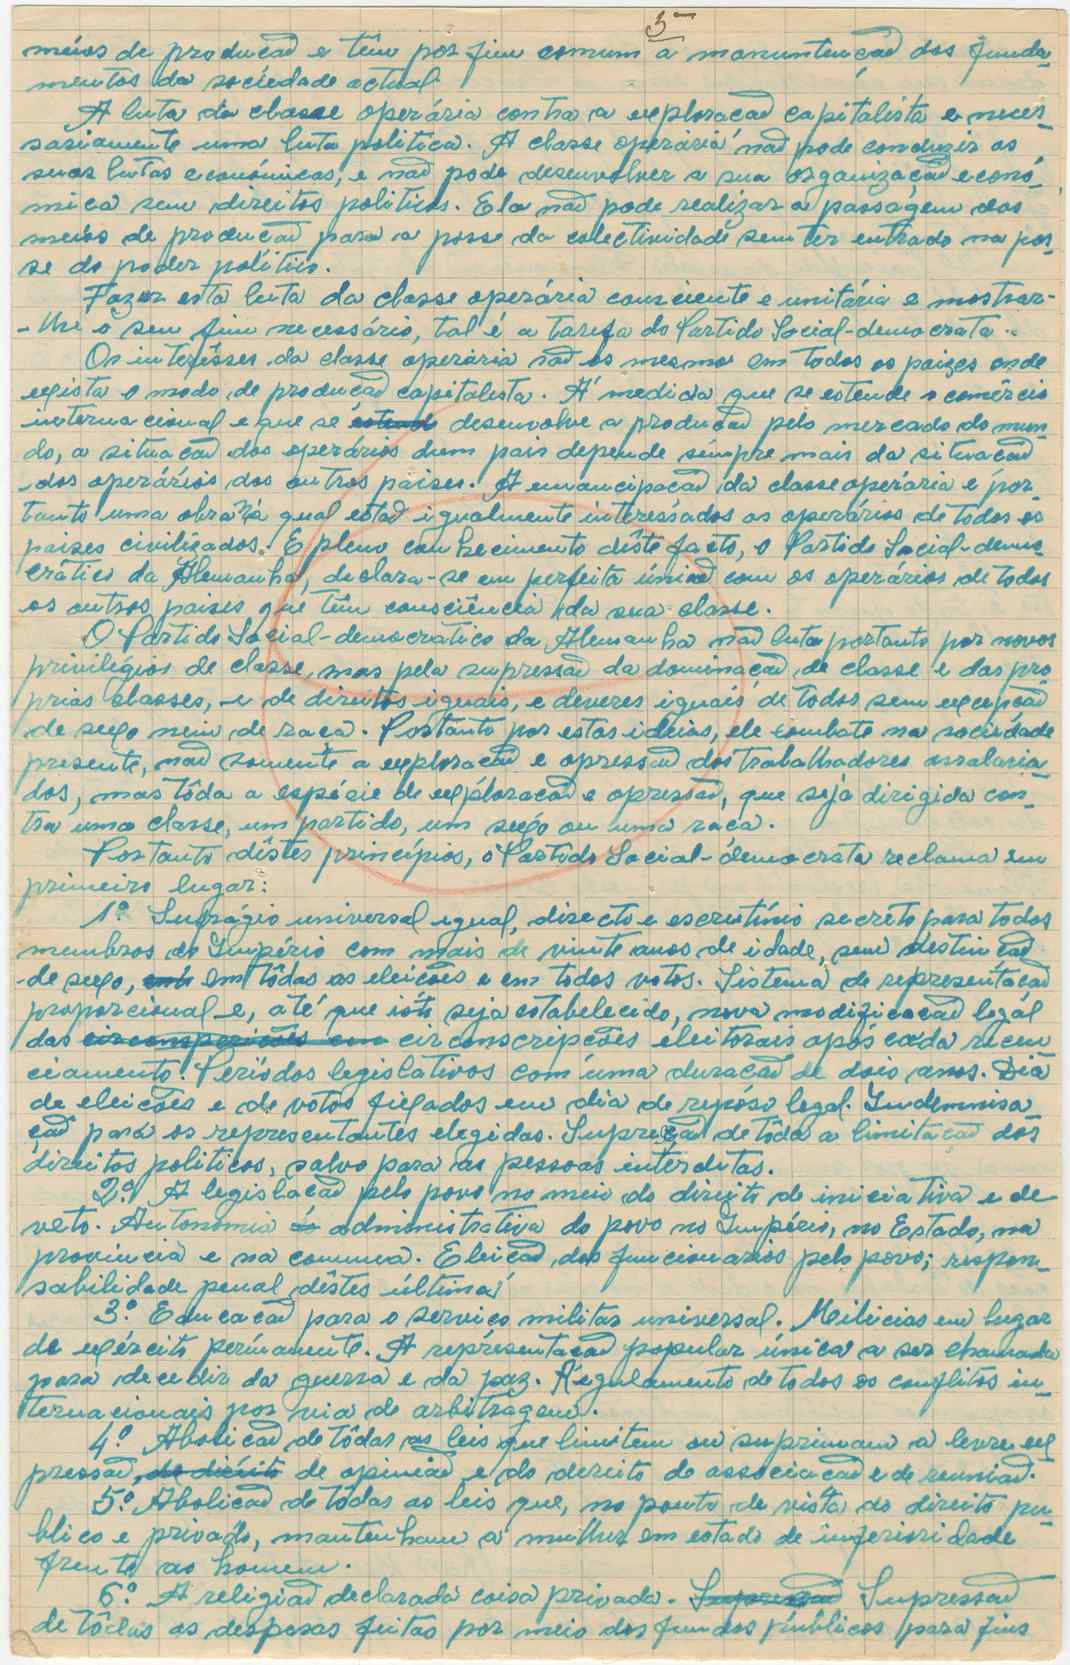 3
meios de producão e têm por fim comum a manuntenção dos funda-
mentos da sociedade actual
A luta da classe operária contra a exploracão capitalista e neces-
sariamente uma luta politica. A classe operária não pode conduzir as
suas lutas económicas, e não pode desenvolver a sua organização econó-
mica sem direitos politicos. Ela não pode realizar a passagem dos
meios de producão para a posse da colectividade sem ter entrado na pos-
se do poder politico.
Fazer esta luta da classe operária consciente e unitária e mostrar-
-lhe o seu fim necessário, tal é a tarefa do Partido Social-democrata.
Os interêsses da classe operária são os mesmos em todos os paizes onde
exista o modo de producão capitalista. Á medida que se estende o comércio
internacional e que se estende desenvolve a producão pelo mercado do mun-
do, a situacão dos operários dum pais depende sempre mais da situacão
dos operários dos outros paises. A emancipacão da classe operária é por-
tanto uma obra na qual estão igualmente interessados os operários de todos os
paises civilizados. E pleno conhecimento dêste facto, o Partido Social-demo-
crático da Alemanha, declara-se em perfeita união com os operários de todos
os outros paises que têm consciência da sua classe.
O Partido Social-democratico da Alemanha não luta portanto por novos
privilégios de classe, mas pela supressão da dominação de classe e das pro
prias classes, e de direitos iguais, e deveres iguais de todos sem excepcão
de sexo nem de raca. Portanto por estas ideias, ele combate na sociedade
presente, não somente a exploracão e opressão dos trabalhadores assalaria-
dos, mas tôda a espécie de exploracão e opressão, que seja dirigida con-
tra uma classe, um partido, um sexo ou uma raca.
Portanto dêstes princípios, o Partido Social-democrata reclama em
primeiro lugar:
1º Sufrágio universal igual, directo e escrutínio secreto para todos
membros do Império com mais de vinte anos de idade, sem destincão
de sexo, em tôdas as eleicões e em todos votos. Sistema de representacão
proporcional e, até que isto seja estabelecido, nova modificacão legal
das circonscripcões eleitorais após cada recen
ciamento. Períodos legislativos com uma duracão de dois anos. Dia
de eleicões e de votos fixados em dia de repóso legal. Indemnisa
ção para os representantes elegidos. Supressão de tôda a limitacão dos
direitos politicos, salvo para as pessoas interditas.
2º A legislacão pelo povo no meio do direito de iniciativa e de
veto. Autonomia administrativa do povo no Império, no Estado, na
provincia e na comuna. Eleicão dos funcionarios pelo povo; respon-
sabilidade penal dêstes última
3º Educacão para o servico militar universal. Milicias em lugar
de exército permamente. A representacão popular única a ser chamada
para decedir da guerra e da paz. Regulamento de todos os conflitos in-
ternacionais por via de arbitragem.
4º Abolicão de tôdas as leis que limitem ou suprimam a levre ex
pressão, de dierito de opinião e do dereito de associacão e de reunião.
5º Abolicão de tôdas as leis que, no ponto de vista do direito pu-
blico e privado, mantenham a mulher em estado de inferioridade
frente ao homem.
6º A religião declarada coisa privada. Supressão Supressão
de tôdas as despesas feitas por meio dos fundos públicos para fins